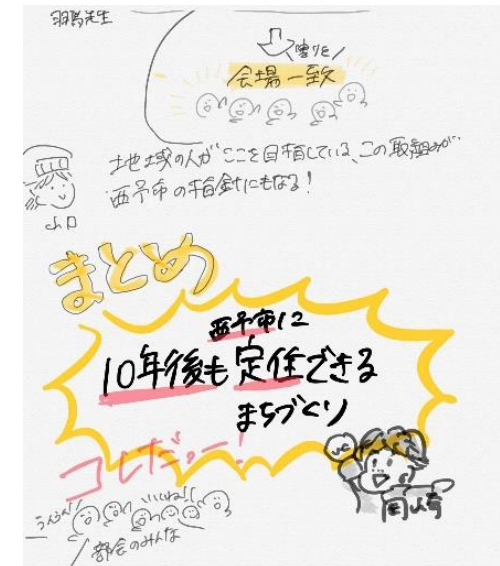 羽鳥先生
会場一致
地域の人がここを目指している、この取組みが
西予市の指針にもなる！
山口
まとめ
西予市に
10年後も定住できる
まちづくり
コレだぁー！
うんうん
いいね!!
岡崎
部会のみんな